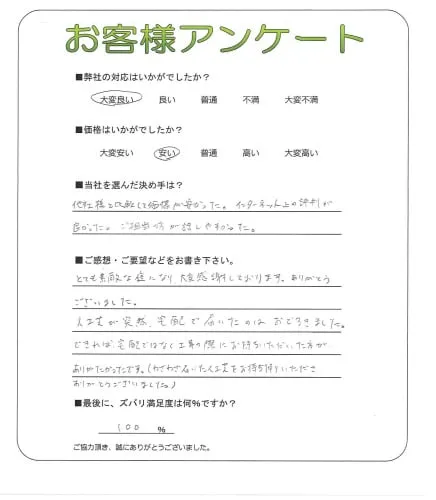 お客様アンケート
■弊社の対応はいかがでしたか？
大変良い 良い 普通 不満 大変不満
■価格はいかがでしたか？
大変安い 安い 普通 高い 大変高い
■当社を選んだ決め手は？
他社様と比較して価格が安かった。インターネット上の評判が
良かった。ご担当の方が話しやすかった。
■ご感想・ご要望などをお書き下さい。
とても素敵な庭になり、大変感謝しております。ありがとう
ございました。
人工芝が突然、宅配で届いたのはおどろきました。
できれば、宅配ではなく工事の際にお持ちいただいた方が
ありがたかったです。(わざわざ届いた人工芝をお持ち帰りいただき
ありがとうございました。)
■最後に、ズバリ満足度は何%ですか？
100 %
ご協力頂き、誠にありがとうございました。